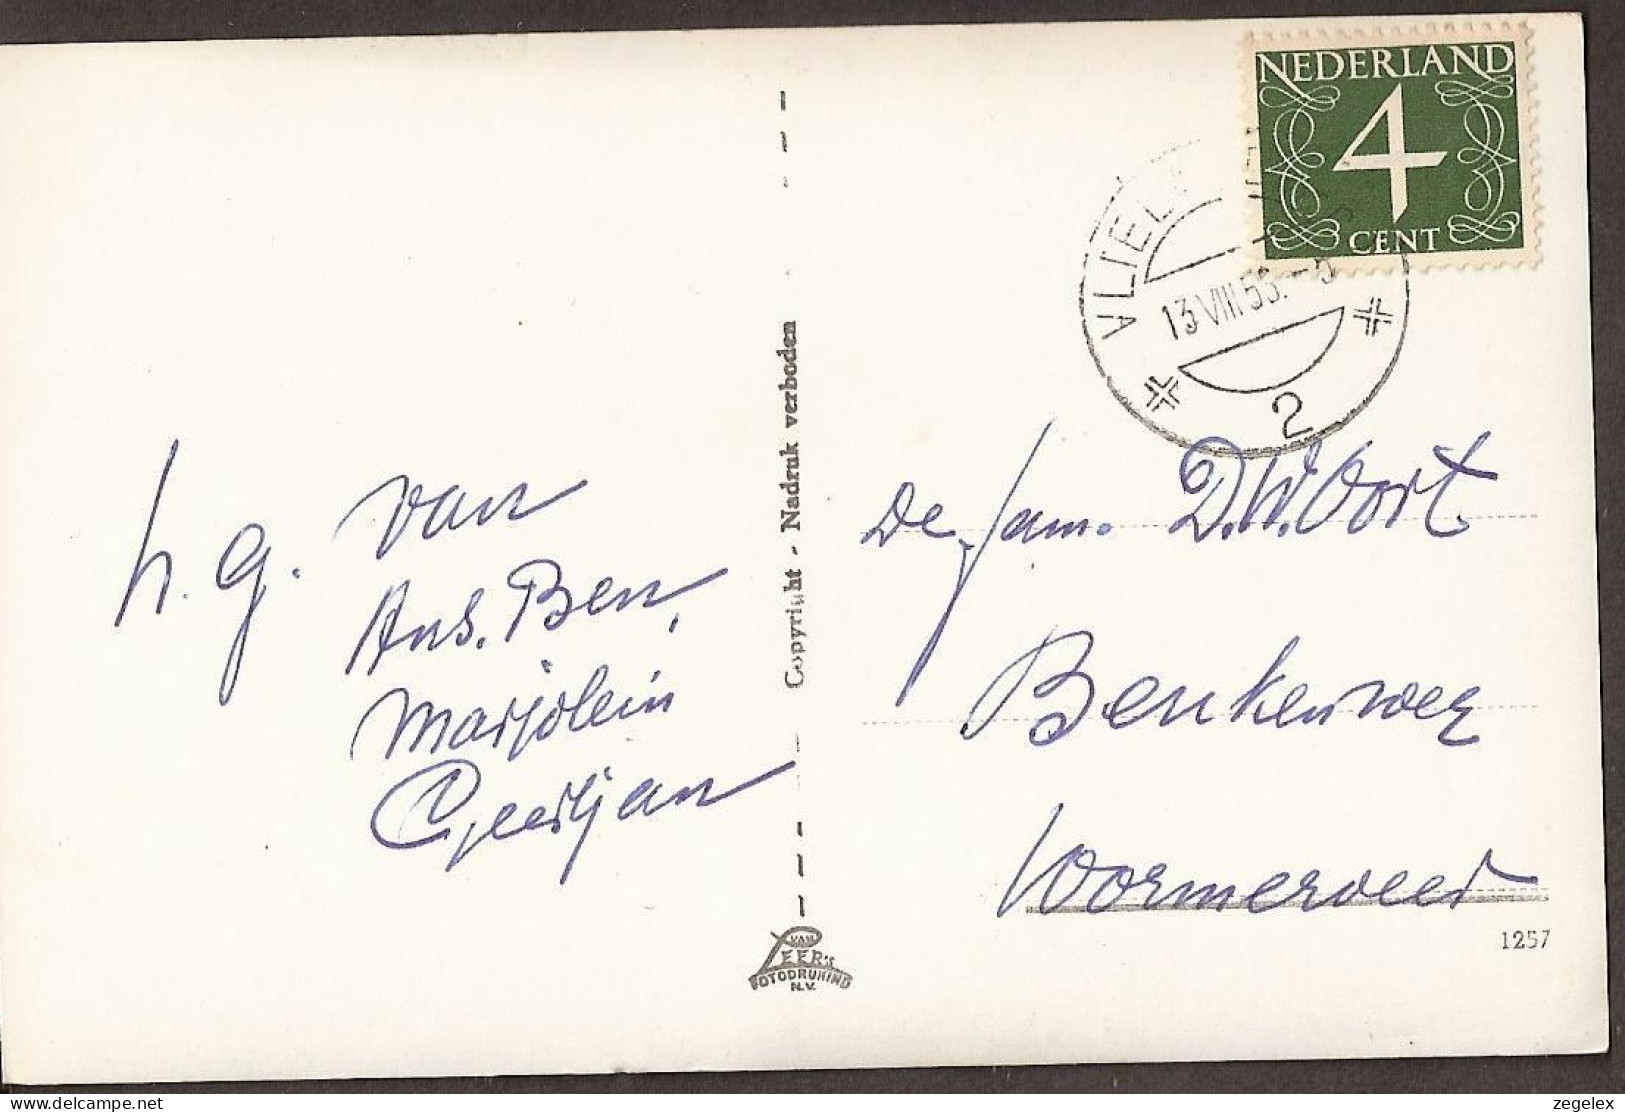 NEDERLAND
4
CENT
VLIEL
13 VIII 53. -5
2
h. g. van
Ans. Ben,
Marjolein
Geertjan
Copyright - Nadruk verboden
De fam. D.W. Oort.
Benkenweg
Wormerveer
1257
VAN
LEER's
FOTODRUKIND
N.V.
zegelex